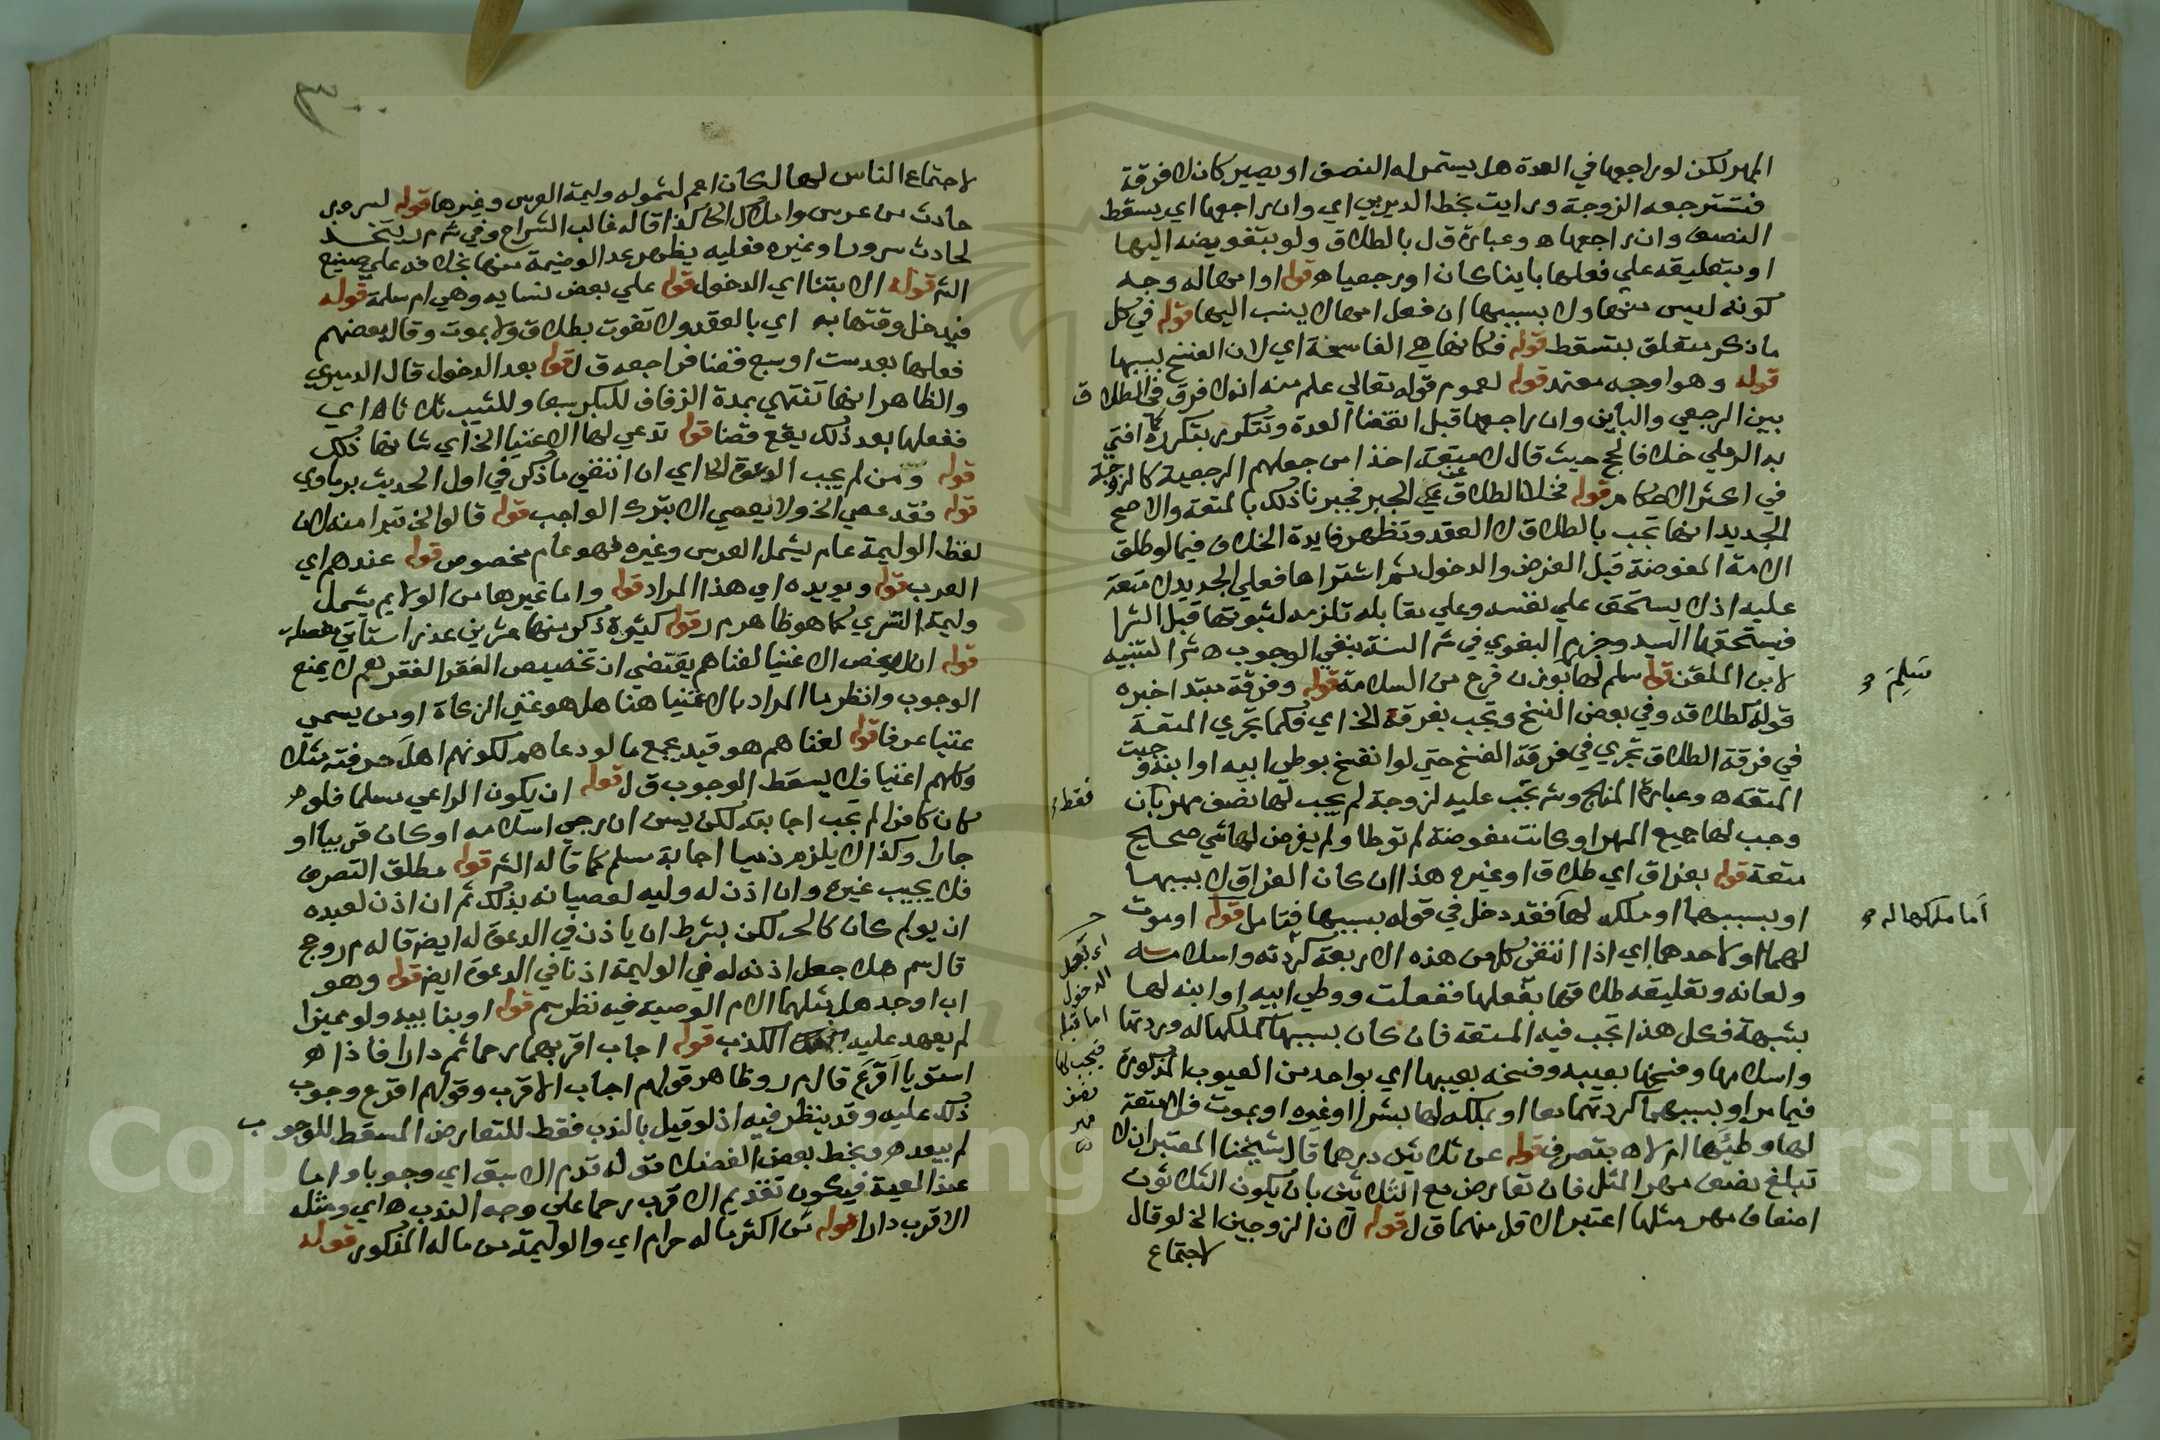 المهر لكن لو راجعها في العدة هل يستمر له النصف او يصير كانه لا فرقة
فتسترجعه الزوجة ورايت بخط الديربي اي وان راجعها اي يسقط
النصف وان راجعها ه وعبارة ق ل بالطلاق ولو بتفويضه اليها
او بتعليقه على فعلها باينا كان او رجعيا ه قوله او امها له وجه
كونه ليس منها ولا بسببها ان فعل امها لا ينسب اليها قوله في كل
ما ذكر متعلق بتسقط قوله فكانها هي الفاسخة اي لان الفسخ بسببها
قوله وهو اوجه معتمد قوله لعموم قوله تعالى علم منه انه لا فرق في الطلاق
بين الرجعي والباين وان راجعها قبل انقضا العدة وتتكرر بتكرره كما افتى
به الرملي خلافا لحج حيث قال لا متعة اخذا من جعلهم الرجعية كالزوجة
في اكثر الاحكام قوله فخلا الطلاق عن الجبر فجبرنا ذلك بالمتعة والاصح
الجديد انها تجب بالطلاق لا العقد وتظهر فايدة الخلاف فيما لو طلق
الامة المفوضة قبل الفرض والدخول ثم اشتراها فعلى الجديد لا متعة
عليه اذ لا يستحق على نفسه وعلى مقابله تلزمه لثبوتها قبل الشرا
فيستحقها السيد وجزم البغوي في شرح السنة بنفي الوجوب ه شرح التنبيه
لابن الملقن قوله سلم لها بوزن فرح من السلامة قوله وفرقة مبتدا خبره
قوله كطلاقه وفي بعض النسخ وتجب بفرقة الخ اي فكما تجري المتعة
في فرقة الطلاق تجري في فرقة الفسخ حتى لو انفسخ بوطي ابيه او ابنه وجبت
المتعة ه وعبارة المنهج وشرحه تجب عليه لزوجة لم يجب لها نصف مهر بان
وجب لها جميع المهر او كانت مفوضة لم توطا ولم يفرض لها شي صحيح
متعة قوله بفراق اي طلاق او غيره هذا ان كان الفراق لا بسببها
او بسببهما او ملكه لها فقد دخل في قوله بسببها فتامل قوله او موت
لهما او لاحدهما اي اذا انتفى كل من هذه الاربعة كردته واسلامه
ولعانه وتعليقه طلاقها بفعلها ففعلت ووطي ابيه او ابنه لها
بشبهة فكل هذا تجب فيه المتعة فان كان بسببها كملكها له وردتها
واسلامها وفسخها بعيبه وفسخه بعيبها اي بواحد من العيوب المذكورة
فيما مر او بسببهما كردتهما معا او بملكه لها بشرا او غيره او بموت فلا متعة
لها وطيها ام لا ه بتصرف قوله عن ثلاثين درهما قال شيخنا المعتبر ان لا
تبلغ نصف مهر المثل فان تعارض مع الثلاثين بان يكون الثلاثون
اضعاف مهر مثلها اعتبر الاقل منهما ق ل قوله لان الزوجين الخ لو قال
لاجتماع
سَلِمَ
اما ملكها له
فقط
اي بعد
الدخول
اما قبله
فيجب لها
نصف
مهر
لاجتماع الناس لها لكان اعم لشموله وليمة العرس وغيرها قوله لسرور
حادث من عرس واملاك الخ كذا قاله غالب الشراح وفي شرح م ر
لحادث سرور او غيره فعليه يظهر عد الوضيمة منها بخلافه على صنيع
الش قوله الا بتنا اي الدخول قوله على بعض نسايه وهي ام سلمة قوله
فيدخل وقتها به اي بالعقد ولا تفوت بطلاق ولا بموت وقال بعضهم
فعلها بعد ست او سبع قضا فراجعه ق ل قوله بعد الدخول قال الدميري
والظاهر انها تنتهي بمدة الزفاف للبكر سبعا وللثيب ثلاثا ه اي
ففعلها بعد ذلك يقع قضا قوله تدعى لها الاغنيا الخ اي شانها ذلك
قوله ومن لم يجب الدعوة الخ اي ان انتفى ما ذكر في اول الحديث برماوي
قوله فقد عصى الخ ولا يعصي الا بترك الواجب قوله قالوا الخ تبرا منه لان
لفظ الوليمة عام يشمل العرس وغيره فهو عام مخصوص قوله عندهم اي
العرب قوله ويويده اي هذا المراد قوله واما غيرها من الولايم يشمل
وليمة التسري كما هو ظاهر م ر قوله كثيرة ذكر منها عشرين عذرا ستاتي مفصلة
قوله ان لا يخص الاغنيا لغناهم يقتضي ان تخصيص الفقرا لفقرهم لا يمنع
الوجوب وانظر ما المراد بالاغنيا هنا هل هو غني الزكاة او من يسمى
غنيا عرفا قوله لغناهم هو قيد يخرج ما لو دعاهم لكونهم اهل حرفته مثلا
وكلهم اغنيا فلا يسقط الوجوب ق ل قوله ان يكون الداعي مسلما فلو
كان كافرا لم تجب اجابته لكن يسن ان رجي اسلامه او كان قريبا او
جارا وكذا لا يلزم ذميا اجابة مسلم كما قاله الش قوله مطلق التصرف
فلا يجيب غيره وان اذن له وليه لعصيانه بذلك ثم ان اذن لعبده
ان يولم كان كالحر لكن بشرط ان ياذن في الدعوة له ايضا قاله م ر وحج
قال سم هلا جعل اذنه له في الوليمة اذنا في الدعوة ايضا قوله وهو
اب او جد هل مثلهما الام الوصية فيه نظر سم قوله او بنابيه ولو مميزا
لم يعهد عليه الكذب قوله اجاب اقربهما رحما ثم دارا فاذا
استويا اقرع قال م ر وظاهر قولهم اجاب الاقرب وقولهم اقرع وجوب
ذلك عليه وقد ينظر فيه اذ لو قيل بالندب فقط للتعارض المسقط للوجوب
لم يبعد ه وبخط بعض الفضلا قوله قدم الاسبق اي وجوبا واما
عند المعية فيكون تقديم الاقرب رحما على وجه الندب ه اي ومثله
الاقرب دارا قوله من اكثر ماله حرام اي والوليمة من ماله المذكور قوله